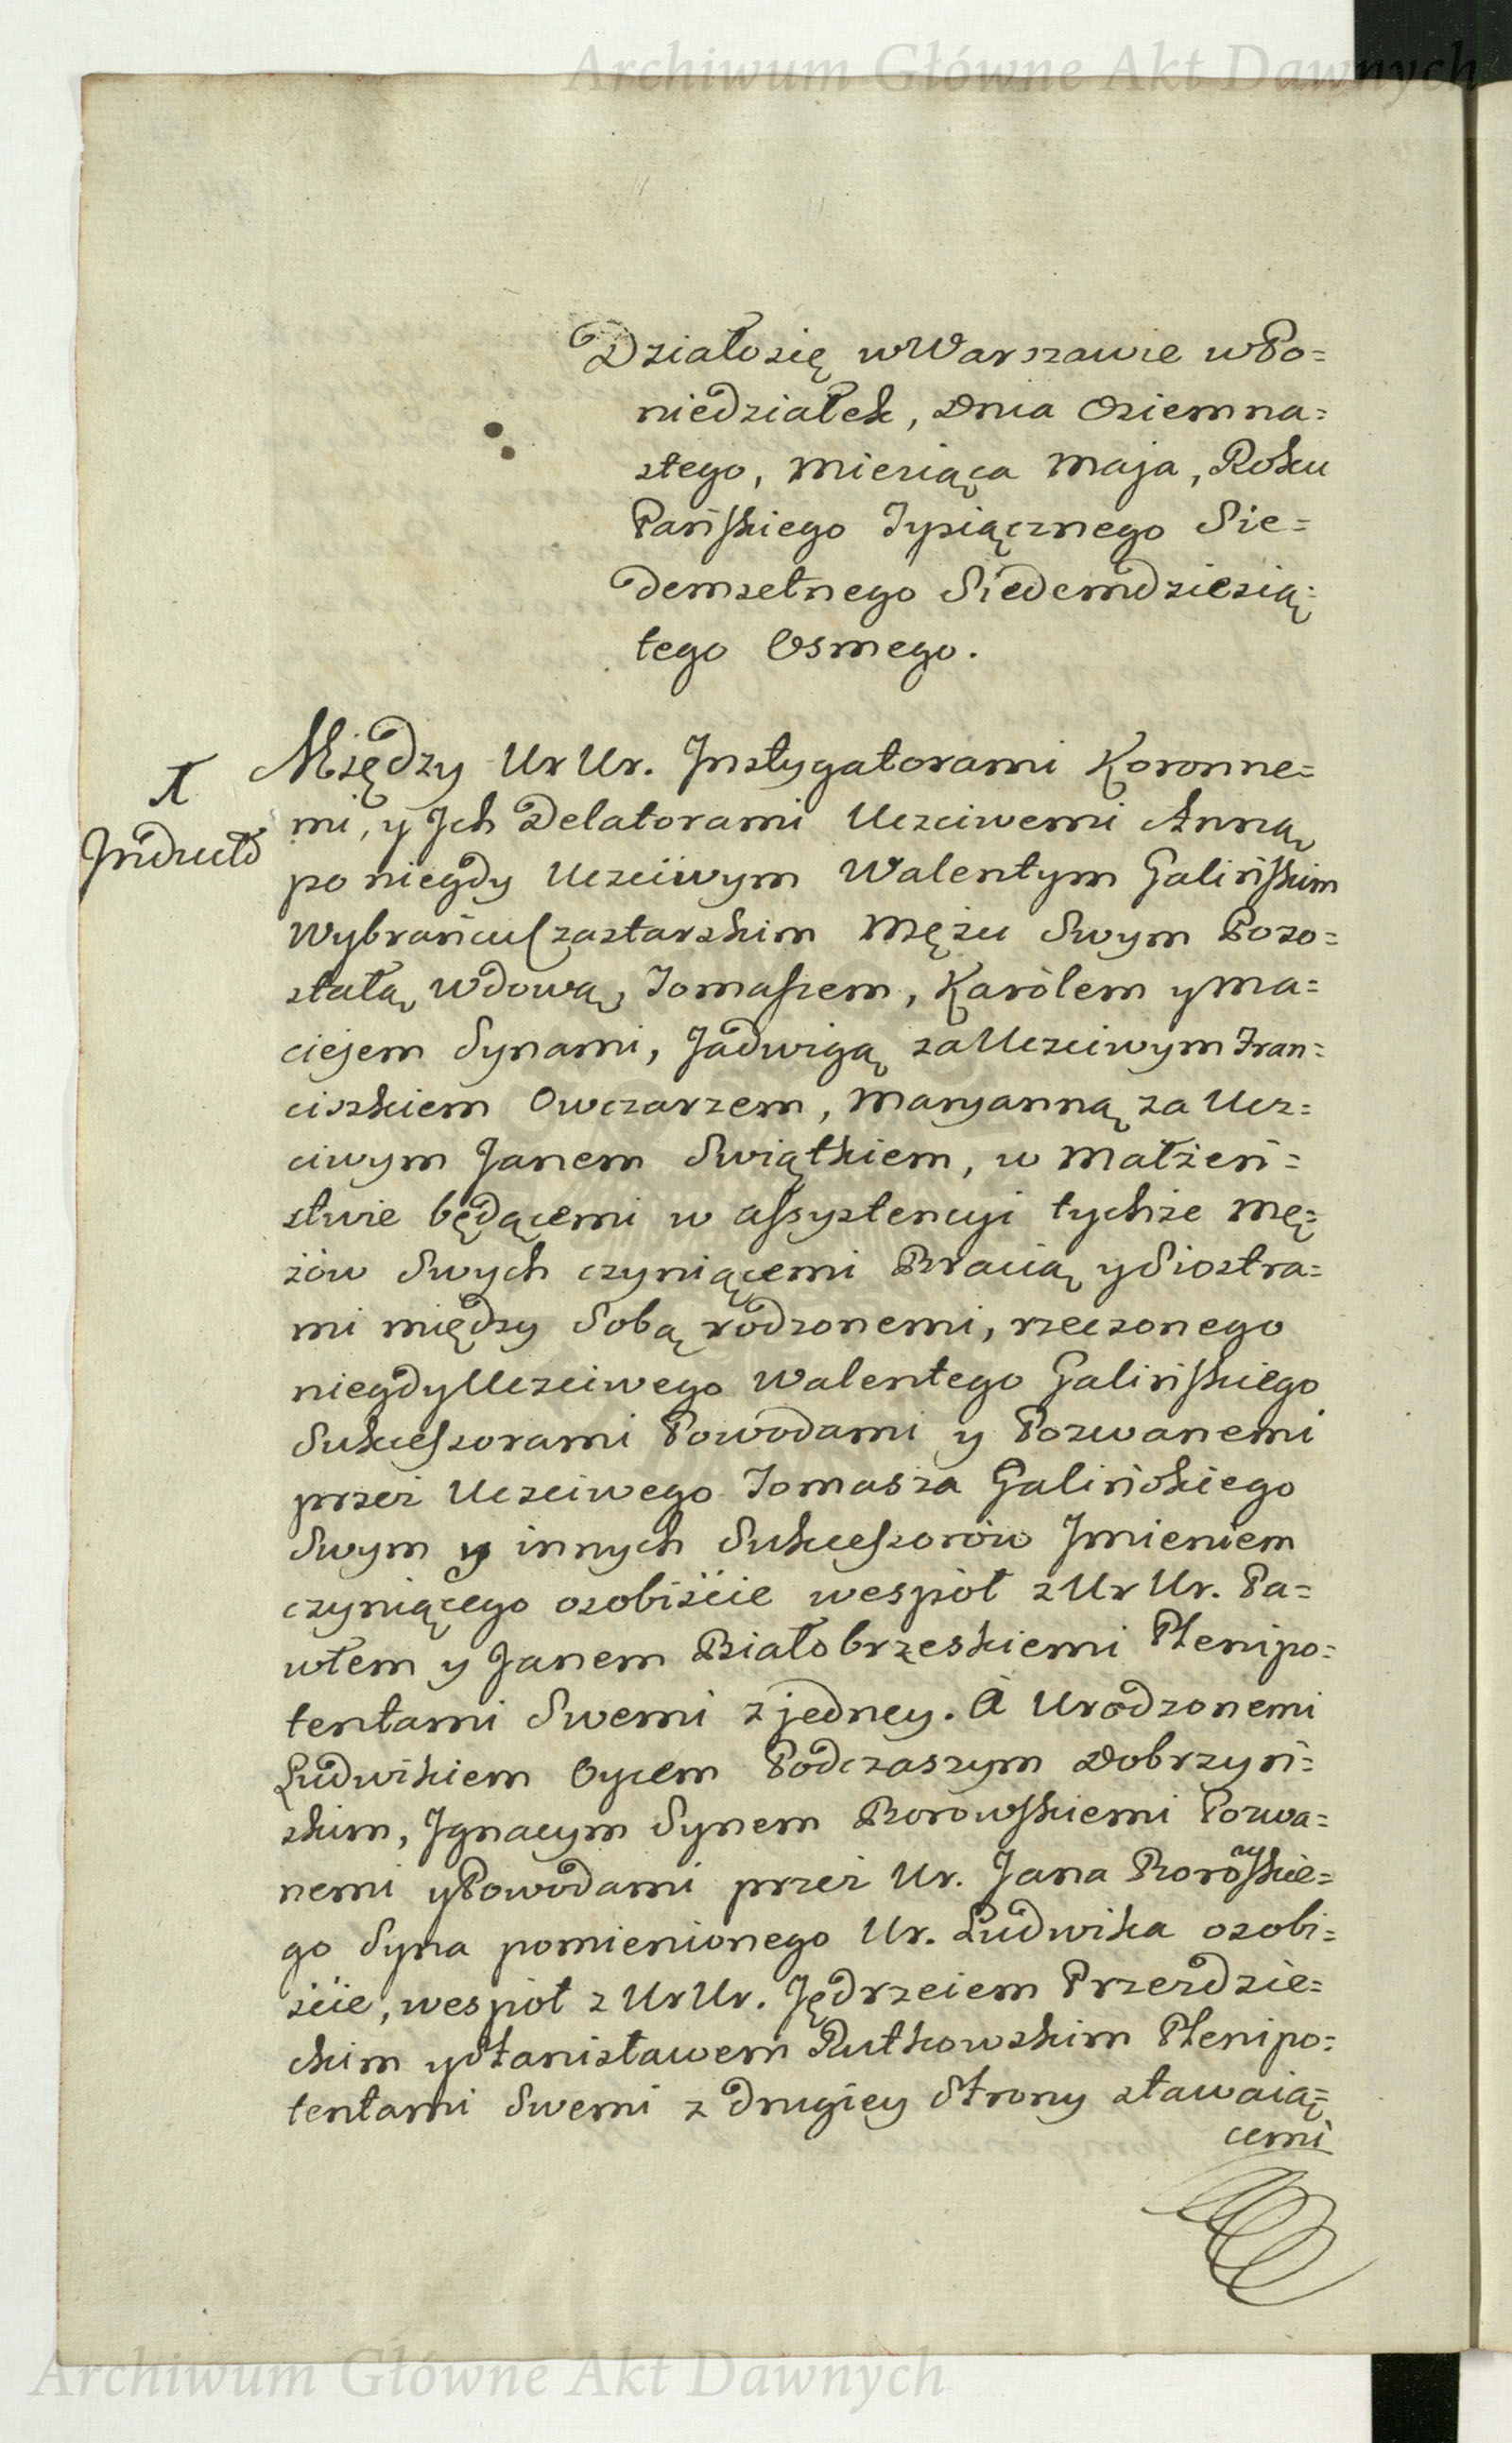 Archiwum Główne Akt Dawnych
Działosię wWarszawie wPo=
niedziałek, Dnia Osiemna=
stego, Miesiąca Maja, Roku
Pańskiego Tysiącznego Sie=
demsetnego Siedemdziesią=
tego Osmego.
Między UrUr. Instygatorami Koronne=
mi, y Ich Delatorami Uczciwemi Anną
po niegdy Uczciwym Walentym Galińskim
Wybrańcu szastarskim Mężu Swym Pozo=
stałą Wdową, Tomaszem, Karólem y Ma=
ciejem Synami, Jadwigą za Uczciwym Fran=
ciszkiem Owczarzem, Maryanną za Ucz=
ciwym Janem Swiątkiem, w Małżeń=
stwie będącemi w assystencyi tychże Mę=
żów Swych czyniącemi Bracią y Siostra=
mi między Sobą rodzonemi, rzeczonego
niegdy Uczciwego Walentego Galińskiego
Sukcessorami Powodami y Pozwanemi
przez Uczciwego Tomasza Galińskiego
Swym y innych Sukcessorów Jmieniem
czyniącego osobiście wespół z UrUr. Pa=
włem y Janem Białobrzeskiemi Plenipo=
tentami Swemi z jedney. A Urodzonemi
Ludwikiem Oycem Podczaszym Dobrzyń=
skim, Ignacym Synem Borowskiemi Pozwa=
nemi y Powodami przez Ur. Jana Borowskie=
go Syna pomienionego Ur. Ludwika osobi=
ście, wespół z UrUr. Jędrzeiem Przezdzie=
ckim y Stanisławem Rutkowskim Plenipo=
tentami Swemi z drugiey Strony stawaią=
cemi
Induct
Archiwum Główne Akt Dawnych